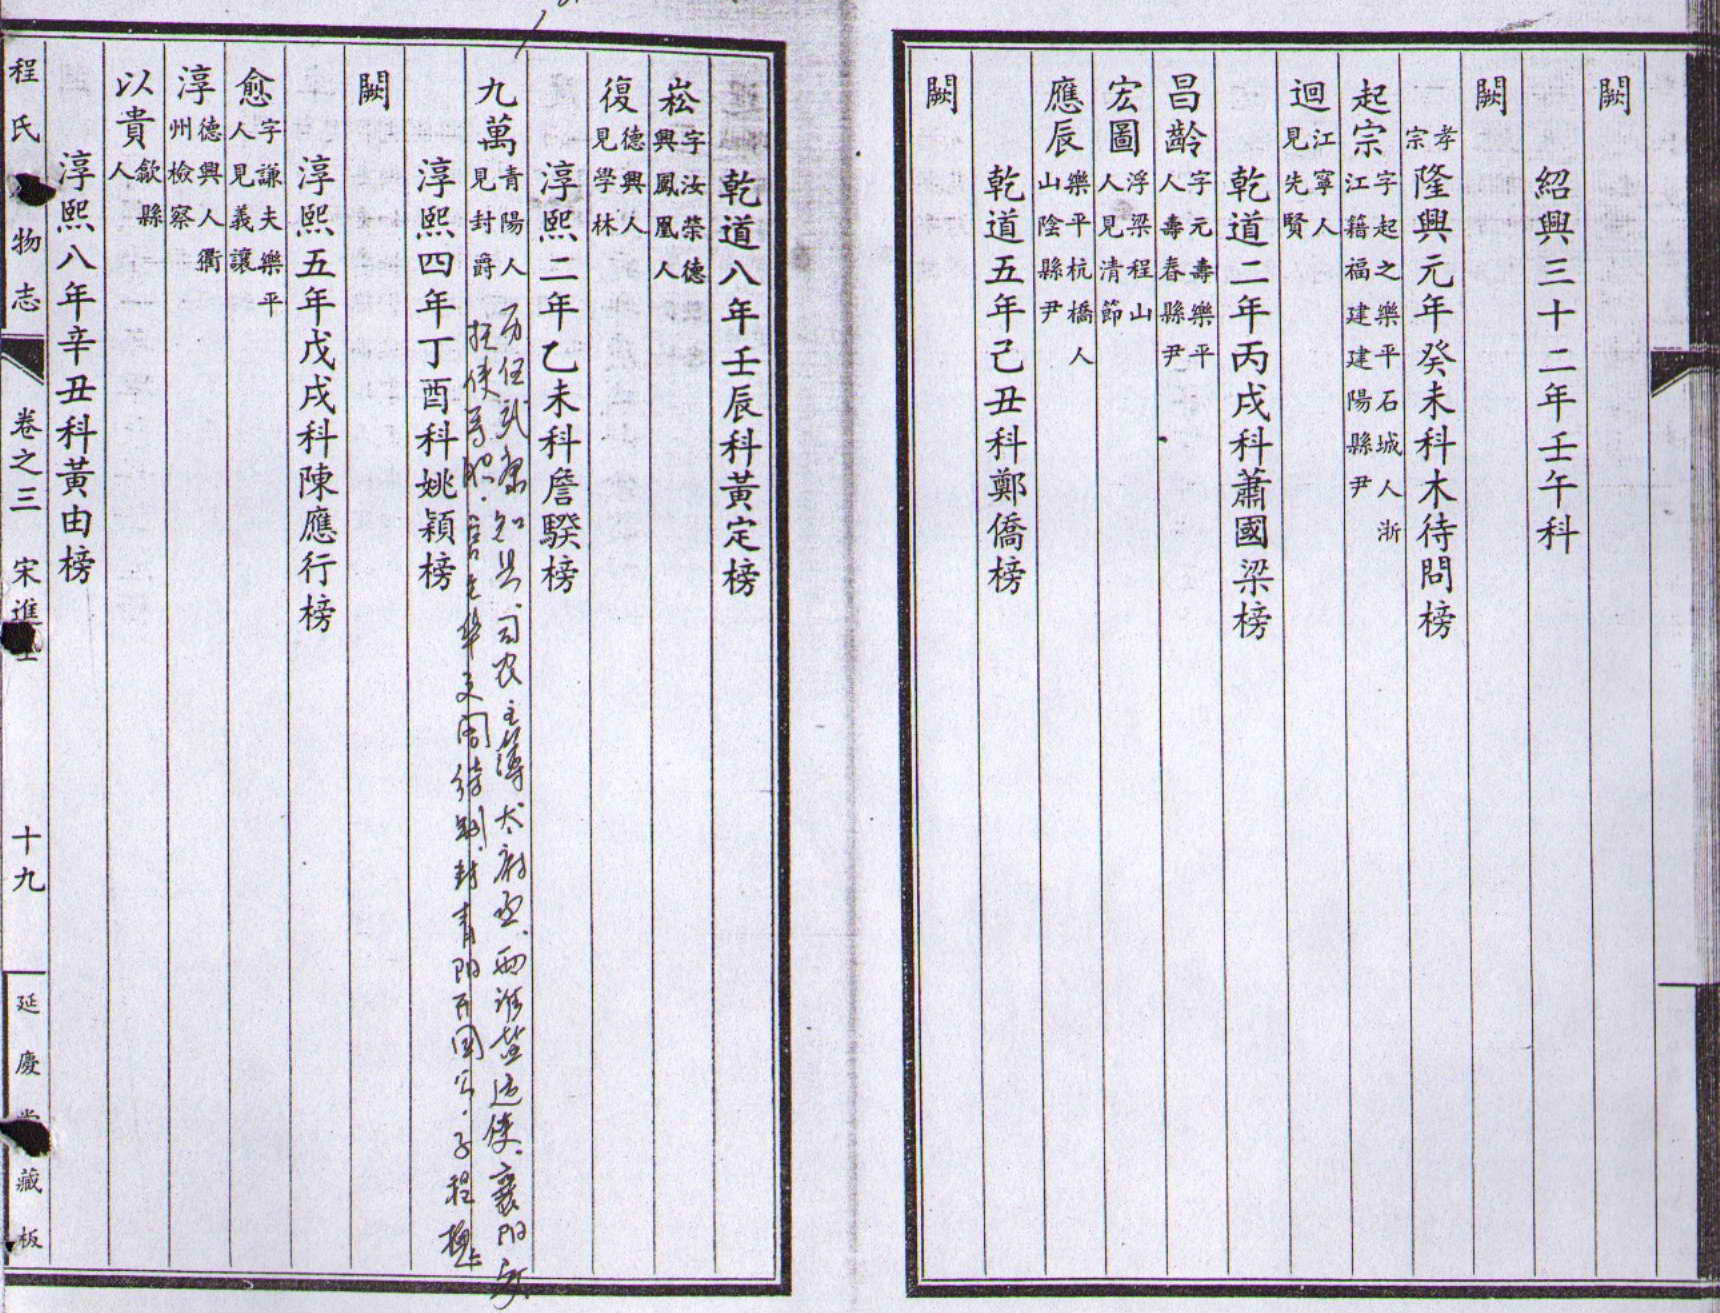 闕
紹興三十二年壬午科
闕
孝宗隆興元年癸未科木待問榜
起宗字起之樂平石城人浙
江籍福建建陽縣尹
迴江寧人
見先賢
乾道二年丙戌科蕭國梁榜
昌齡字元壽樂平
人壽春縣尹
宏圖浮梁程山
人見清節
應辰樂平杭橋人
山陰縣尹
乾道五年己丑科鄭僑榜
闕
乾道八年壬辰科黃定榜
崧字汝榮德
興鳳凰人
復德興人
見學林
淳熙二年乙未科詹騤榜
九萬青陽人
見封爵
历任武康知县、司农主薄、太府丞、两浙
使、襄阳
官至华文阁待制、封青阳开国公.子程
淳熙四年丁酉科姚穎榜
闕
淳熙五年戊戌科陳應行榜
愈字謙夫樂平
人見義讓
淳德興人衢
州檢察
以貴歙縣
人
淳熙八年辛丑科黃由榜
程氏 物志 卷之三 宋進 十九 延慶 藏板